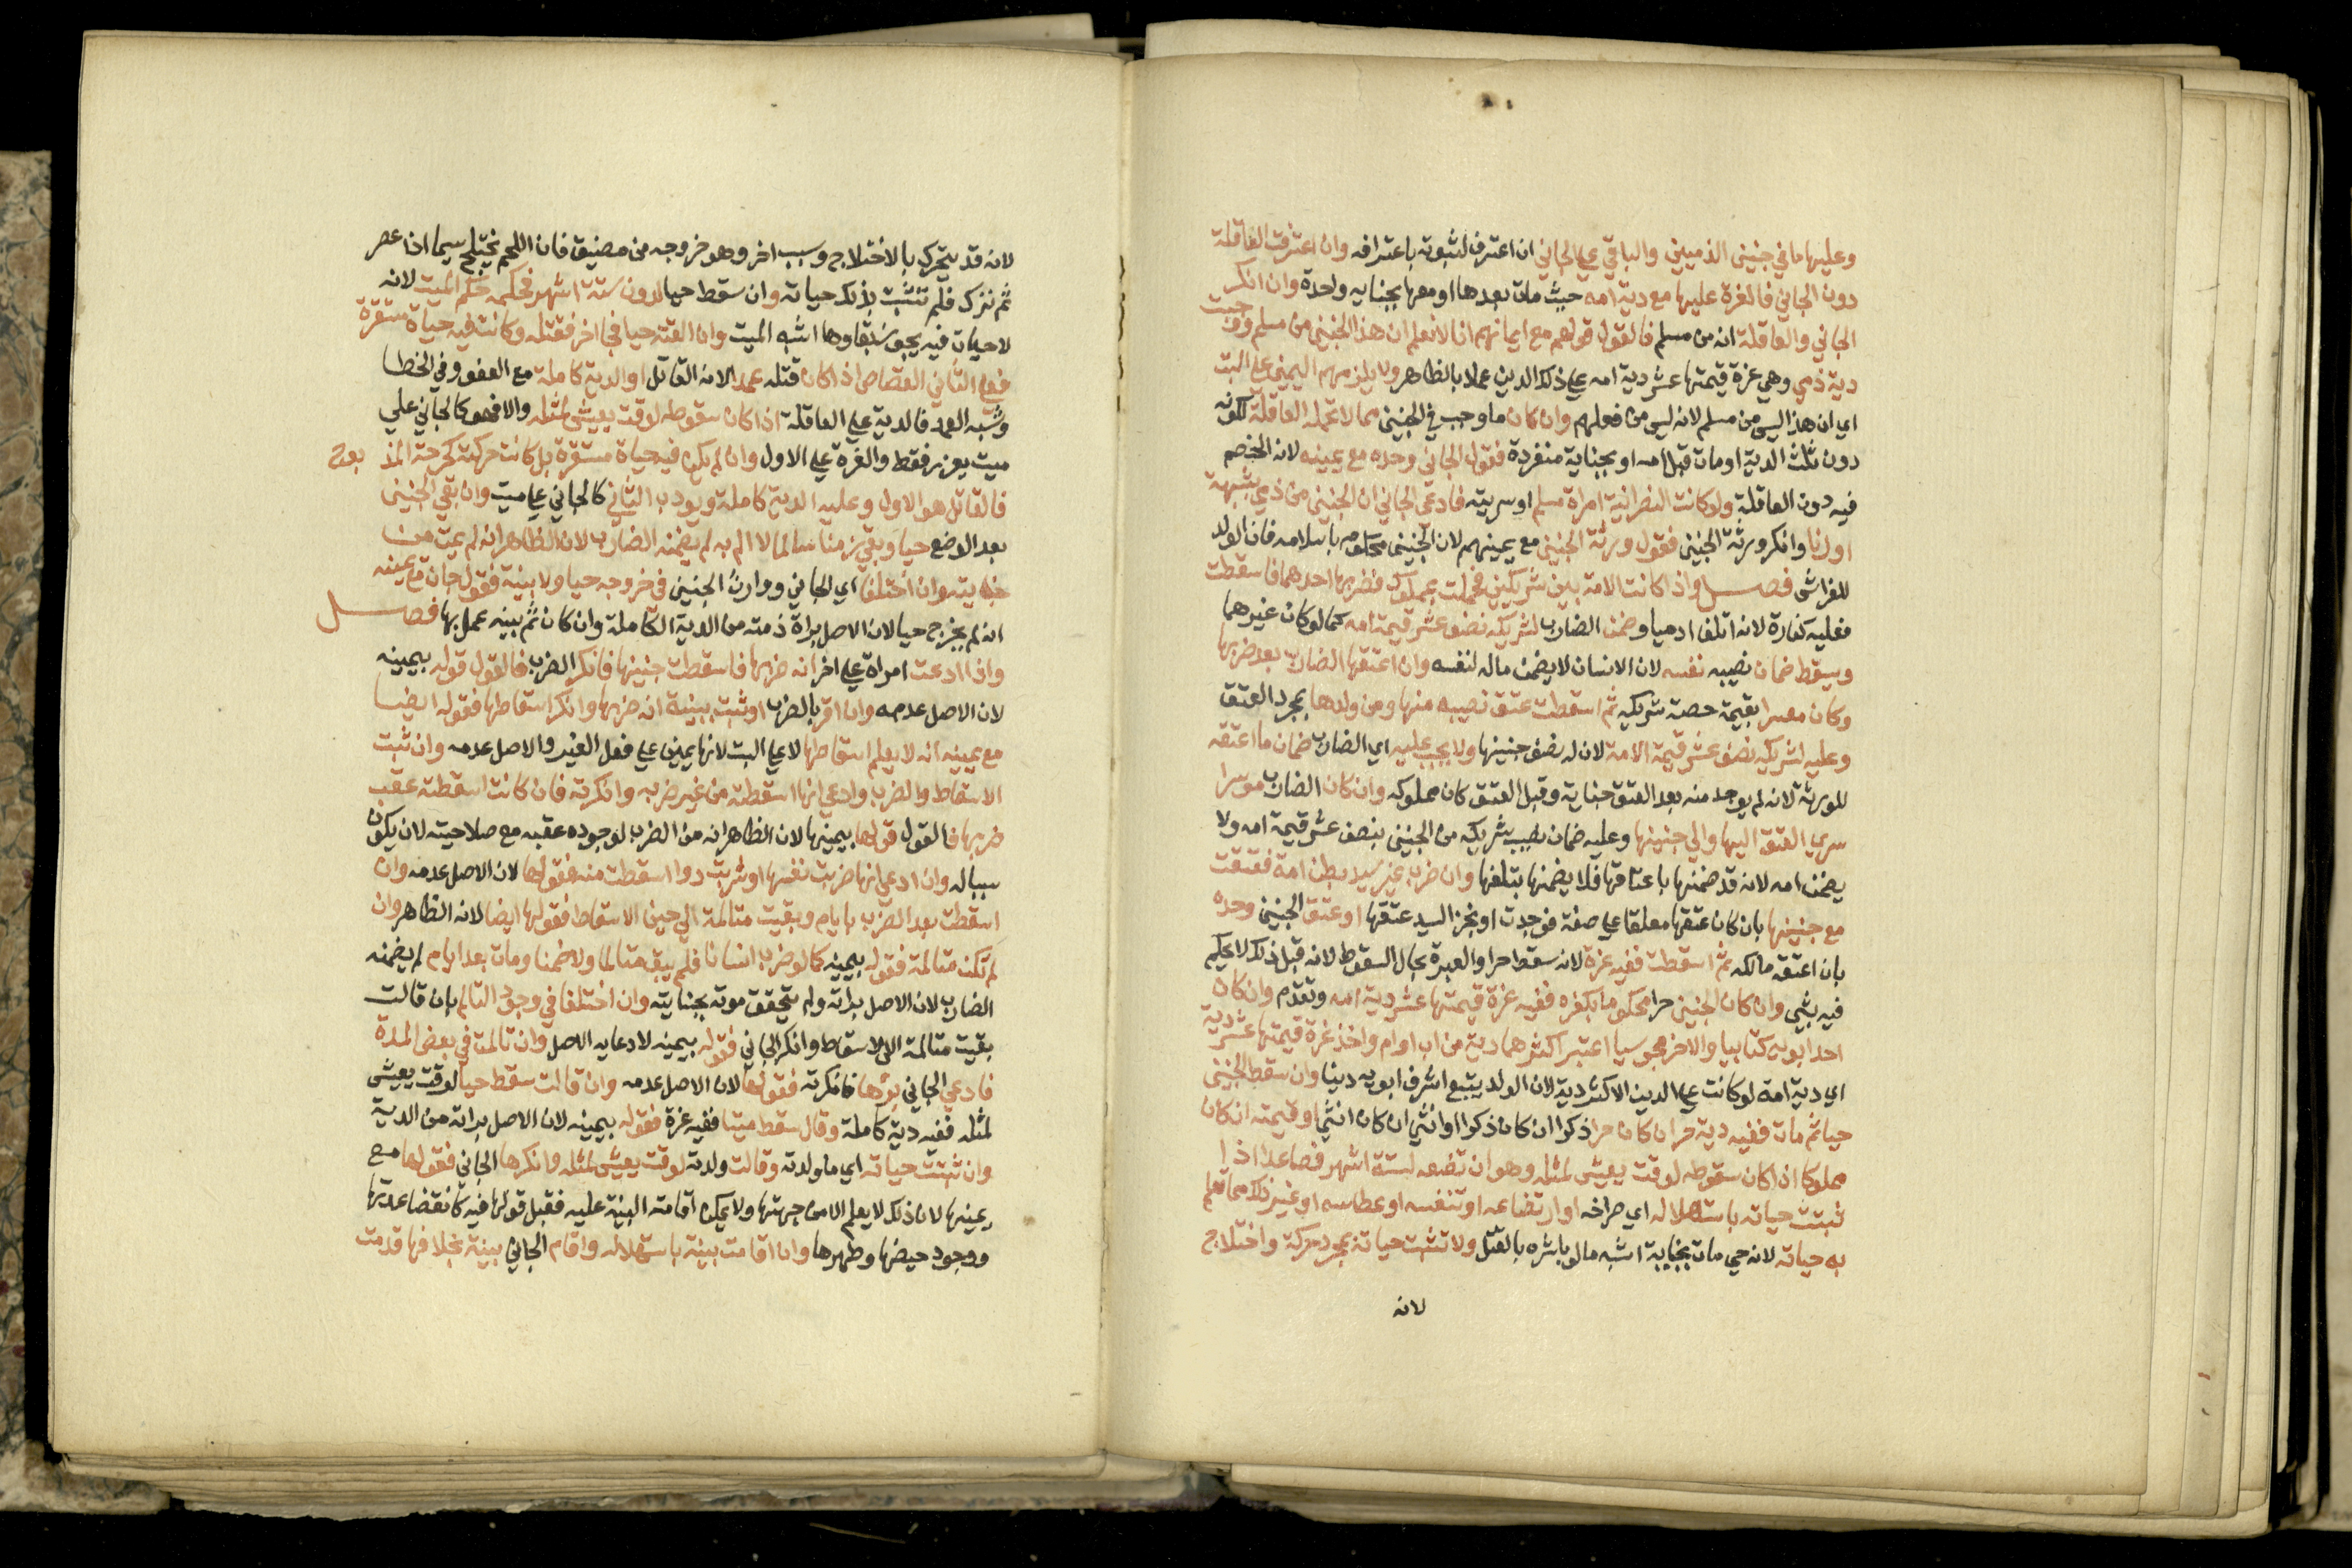 وعليها ما في جنين الذميين والباقي علي الجاني ان اعترف لثبوته باعترافه وان اعترفت العاقلة
دون الجاني فالغرة عليها مع دية امه حيث مات بعدها او معها بجناية واحدة وان انكر
الجاني والعاقلة انه من مسلم فالقول قولهم مع ايمانهم انا لا نعلم ان هذا الجنين من مسلم ووجبت
دية ذمي وهي غرة قيمتها عشر دية امه علي ذلك الدين عملا بالظاهر ولا يلزمهم اليمين علي البت
اي ان هذا ليس من مسلم لانه ليس من فعلهم وان كان ما وجب في الجنين مما لا تحمله العاقلة لكونه
دون ثلث الدية او مات قبل امه او بجناية منفردة فقول الجاني وحده مع يمينه لانه الخصم
فيه دون العاقلة ولو كانت النصرانية امراة مسلم او سريته فادعي الجاني ان الجنين من ذمي بشبهة
او زنا وانكر ورثة الجنين فقول ورثة الجنين مع يمينهم لان الجنين محكوم باسلامه فان الولد
للفراش فصل واذا كانت الامة بين شريكين فحملت بمملوك فضربها احدهما فاسقطت
فعليه كفارة لانه اتلف ادميا وضمن الضارب لشريكه نصف عشر قيمة امه كما لو كان غيرهما
ويسقط ضمان نصيبه نفسه لان الانسان لا يضمن ماله لنفسه وان اعتقها الضارب بعد ضربها
وكان معسرا بقيمة حصة شريكه ثم اسقطت عتق نصيبه منها ومن ولدها بمجرد العتق
وعليه لشريكه نصف عشر قيمة الامة لان له نصف جنينها ولا يجب عليه اي الضارب ضمان ما اعتقه
للورثة لانه لم يوجد منه بعد العتق جناية وقبل العتق كان مملوكه وان كان الضارب موسرا
سري العتق اليها والي جنينها وعليه ضمان نصيب شريكه من الجنين بنصف عشر قيمة امه ولا
يضمن امه لانه قد ضمنها باعتاقها فلا يضمنها بتلفها وان ضرب غير سيد بطن امة فعتقت
مع جنينها بان كان عتقها معلقا علي صفة فوجدت او نجز السيد عتقها او عتق الجنين وحده
بان اعتقه مالكه ثم اسقطت ففيه غرة لانه سقط حرا والعبرة بحال السقوط لانه قبل ذلك لا يحكم
فيه بشي وان كان الجنين حرا محكوما بكفره ففيه غرة قيمتها عشر دية امه وتقدم وان كان
احد ابويه كتابيا والاخر مجوسيا اعتبر اكثرهما دية من اب او ام واخذ غرة قيمتها عشر دية
اي دية امه لو كانت علي الدين الاكثر دية لان الولد يتبع اشرف ابويه دينا وان سقط الجنين
حيا ثم مات ففيه دية حر ان كان حرا ذكرا ان كان ذكرا او انثي ان كان انثي او قيمته ان كان
مملوكا اذا كان سقوطه لوقت يعيش لمثله وهو ان تضعه لستة اشهر فصاعدا اذا
ثبتت حياته باستهلاله اي صراخه او ارتضاعه او تنفسه او عطاسه او غير ذلك مما تعلم
به حياته لانه حي مات بجناية اشبه ما لو باشره بالقتل ولا تثبت حياته بمجرد حركة واختلاج
لانه
لانه قد يتحرك بالاختلاج وسبب اخر وهو خروجه من مضيق فان اللحم يختلج سيما اذا عصر
ثم ترك فلم تثبت بذلك حياته وان سقط حيا لدون ستة اشهر فحكمه حكم الميت لانه
لا حيات فيه يجوز بقاوها اشبه الميت وان القته حيا فجا اخر فقتله وكانت فيه حياة مستقرة
فعلي الثاني القصاص اذا كان قتله عمدا لانه القاتل او الدية كاملة مع العفو وفي الخطا
وشبه العمد فالدية علي العاقلة اذا كان سقوطه لوقت يعيش لمثله والا فهو كالجاني علي
ميت يعزر فقط والغرة علي الاول وان لم يكن فيه حياة مستقرة بل كانت حركته كحركة المذ بوح
فالقاتل هو الاول وعليه الدية كاملة ويودب الثاني كالجاني علي ميت وان بقي الجنين
بعد الوضع حيا وبقي زمنا سالما لا الم به لم يضمنه الضارب لان الظاهر انه لم يمت من
جنايته وان اختلفا اي الجاني ووارث الجنين في خروجه حيا ولا بينة فقول جان مع يمينه
انه لم يخرج حيا لان الاصل براة ذمته من الدية الكاملة وان كان ثم بينه عمل بها فصل
واذا ادعت امراة علي اخر انه ضربها فاسقطت جنينها فانكر الضرب فالقول قوله بيمينه
لان الاصل عدمه وان اقر بالضرب او ثبت ببينة انه ضربها وانكر اسقاطها فقوله ايضا
مع يمينه انه لا يعلم اسقاطها لا علي البت لانها يمين علي فعل الغير والاصل عدمه وان ثبت
الاسقاط والضرب وادعي انها اسقطته من غير ضربه وانكرته فان كانت اسقطته عقب
ضربها فالقول قولها بيمينها لان الظاهر انه من الضرب لوجوده عقبه مع صلاحيته لان يكون
سببا له وان ادعي انها ضربت نفسها او شربت دوا اسقطت منه فقولها لان الاصل عدمه وان
اسقطت بعد الضرب بايام وبقيت متالمة الي حين الاسقاط فقولها ايضا لانه الظاهر وان
لم تكن متالمة فقوله بيمينه كما لو ضرب انسانا فلم يبق متالما ولا ضمنا ومات بعد ايام لم يضمنه
الضارب لان الاصل براته ولم يتحقق موته بجنايته وان اختلفا في وجود التالم بان قالت
بقيت متالمة الي الاسقاط وانكر الجاني فقوله بيمينه لادعايه الاصل وان تالمت في بعض المدة
فادعي الجاني برءها فانكرته فقولها لان الاصل عدمه وان قالت سقط حيا لوقت يعيش
لمثله ففيه دية كاملة وقال سقط ميتا ففيه غرة فقوله بيمينه لان الاصل براته من الدية
وان ثبتت حياته اي ما ولدته وقالت ولدته لوقت يعيش لمثله وانكرها الجاني فقولها مع
يمينها لان ذلك لا يعلم الا من جهتها ولا يمكن اقامة البينة عليه فقبل قولها فيه كانقضا عدتها
ووجود حيضها وطهرها وان اقامت بينة باستهلاله واقام الجاني بينة بخلافها قدمت